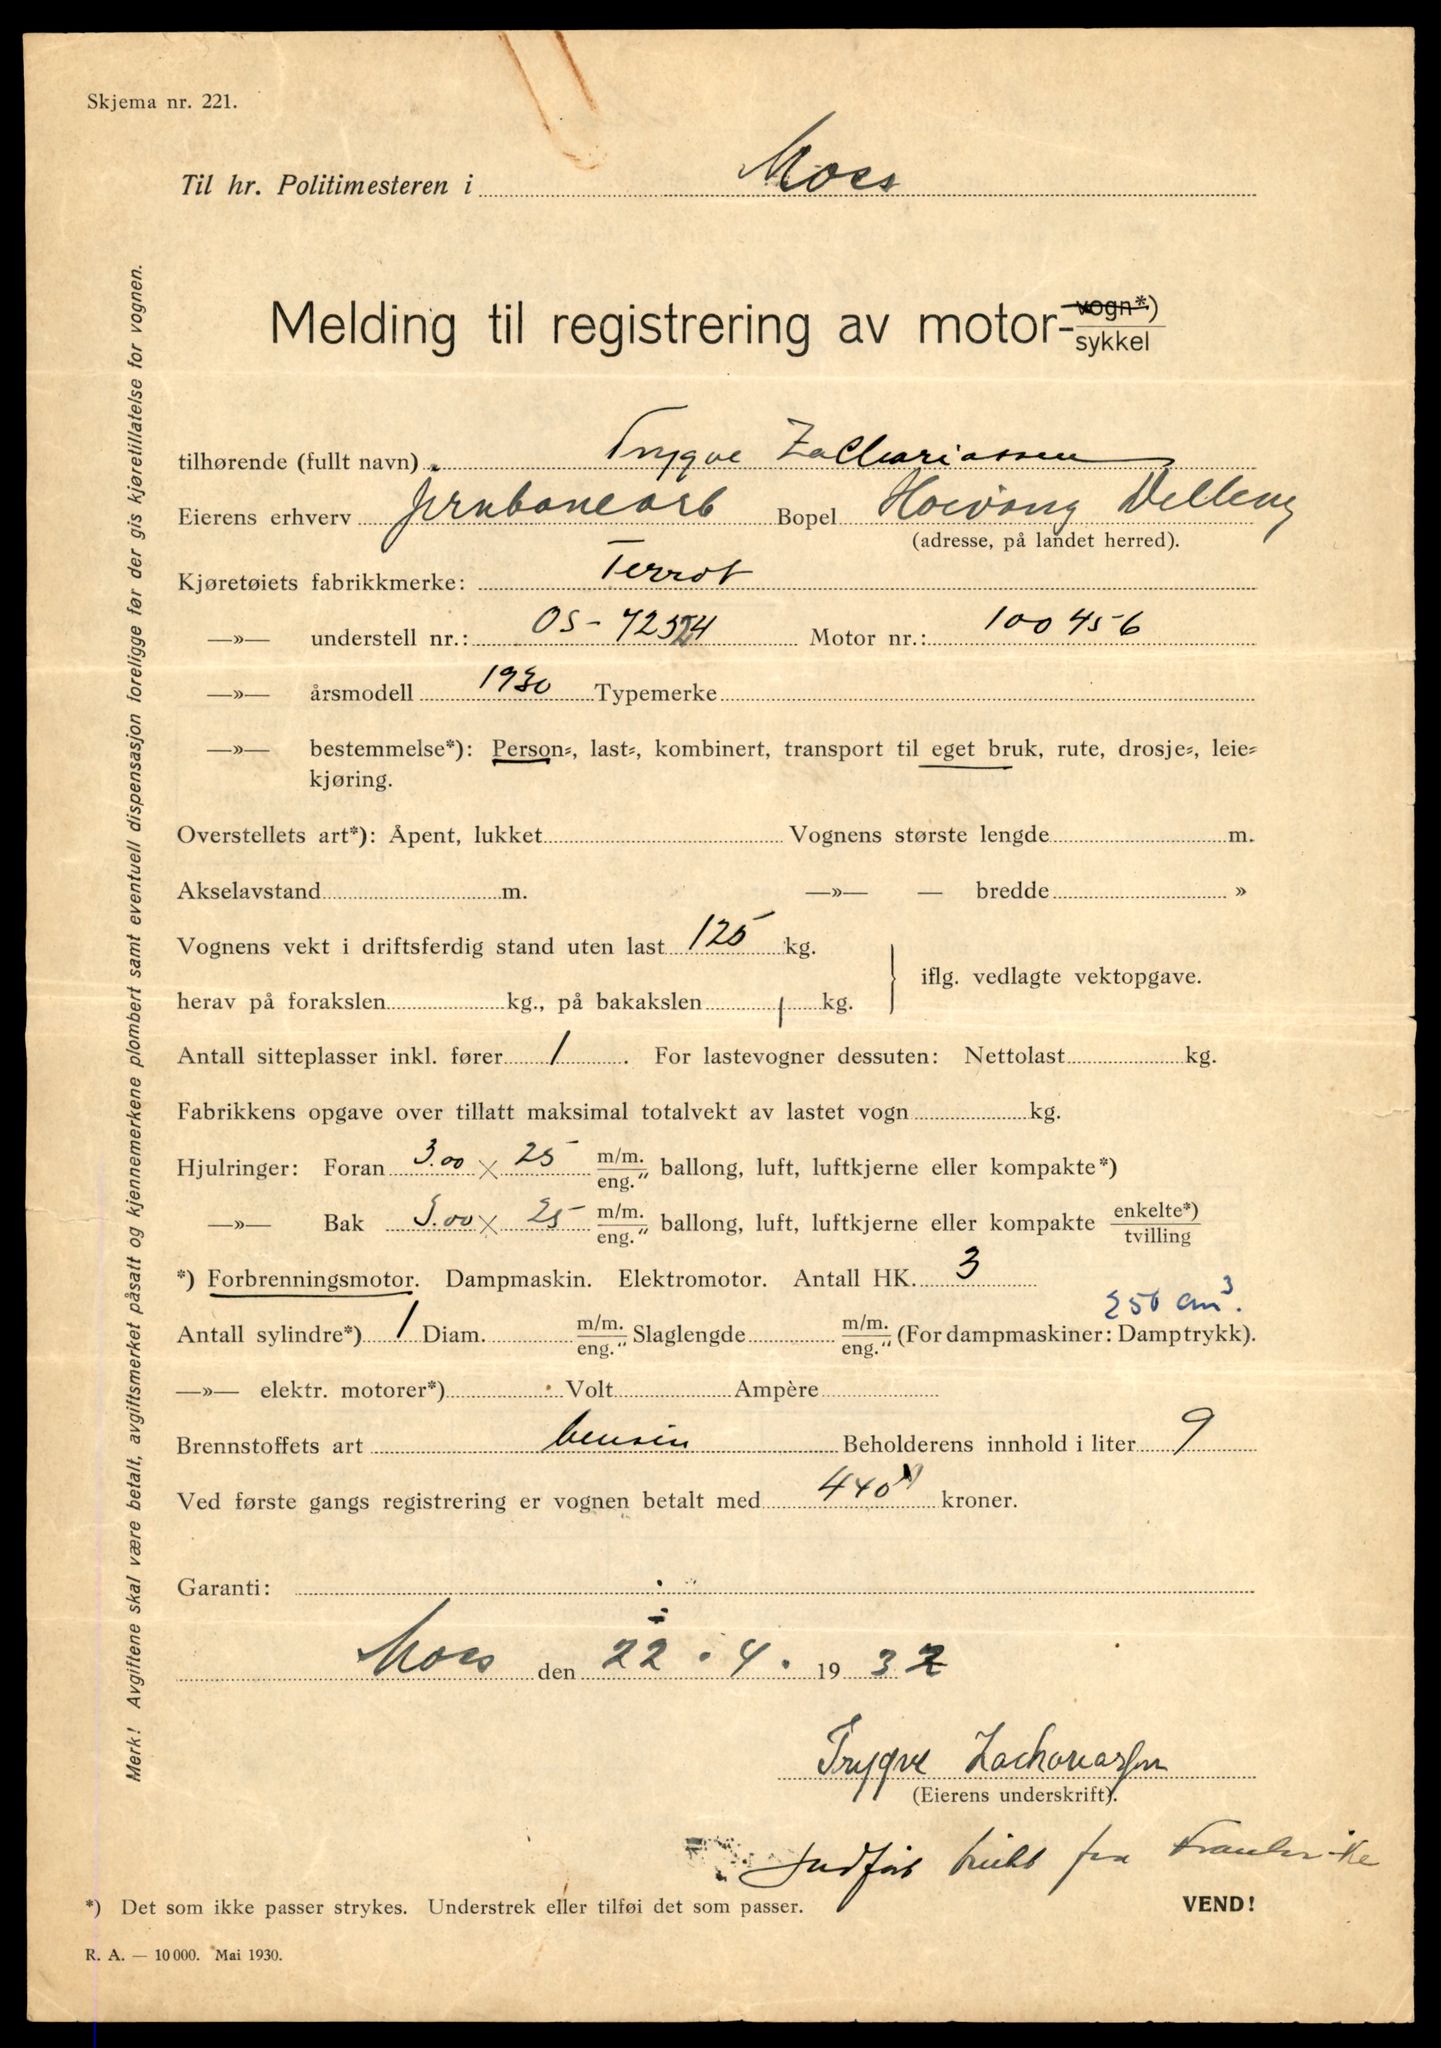 Skjema nr. 221.
Til hr. Politimesteren i Moss
Melding til registrering av motor-vogn*)
sykkel
tilhørende (fullt navn) Trygve Zachariassen
Eierens erhverv jernbanearb Bopel
(adresse, på landet herred).
Kjøretøiets fabrikkmerke: Terrot
—»— understell nr.: OS- Motor nr.: 100456
—»— årsmodell 1930 Typemerke
—»— bestemmelse*): Person-, last-, kombinert, transport til eget bruk, rute, drosje-, leie-
kjøring.
Overstellets art*): Åpent, lukket Vognens største lengde m.
Akselavstand m. —»— — bredde »
Vognens vekt i driftsferdig stand uten last 125 kg.
herav på forakslen kg., på bakakslen kg. iflg. vedlagte vektopgave.
Antall sitteplasser inkl. fører 1. For lastevogner dessuten: Nettolast kg.
Fabrikkens opgave over tillatt maksimal totalvekt av lastet vogn kg.
Hjulringer: Foran 3.00 × 25 m/m. eng." ballong, luft, luftkjerne eller kompakte*)
—»— Bak 3.00 × 25 m/m. eng." ballong, luft, luftkjerne eller kompakte enkelte*) tvilling
*) Forbrenningsmotor. Dampmaskin. Elektromotor. Antall HK. 3
250 cm³.
Antall sylindre*) 1 Diam. m/m. eng." Slaglengde m/m. eng." (For dampmaskiner: Damptrykk).
—»— elektr. motorer*) Volt Ampère
Brennstoffets art bensin Beholderens innhold i liter 9
Ved første gangs registrering er vognen betalt med 440 kroner.
Garanti:
Moss den 22.4.1932
Trygve Zachariassen
(Eierens underskrift).
Indført brukt fra Frankrike
*) Det som ikke passer strykes. Understrek eller tilføi det som passer. VEND!
R. A. — 10 000. Mai 1930.
Merk! Avgiftene skal være betalt, avgiftsmerket påsatt og kjennemerkene plombert samt eventuell dispensasjon foreligge før der gis kjøretillatelse for vognen.